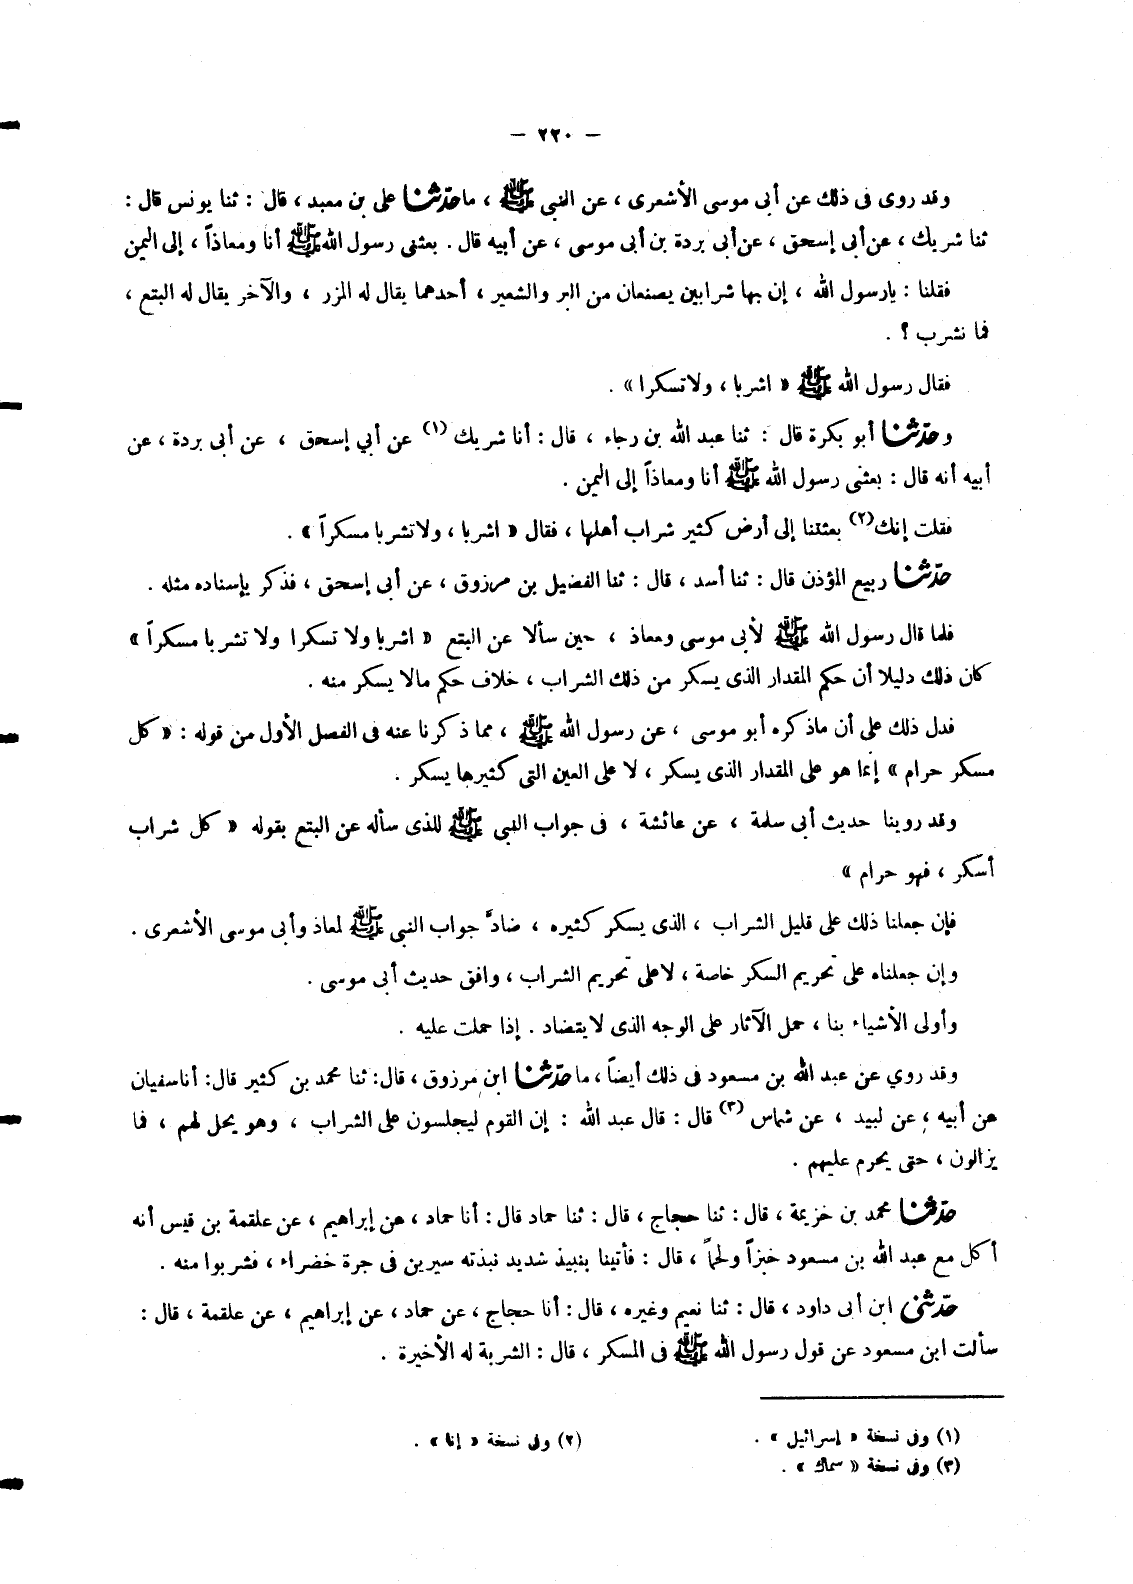 — ٢٢٠ —
وقد روى فى ذلك عن أبى موسى الأشعرى ، عن النبى ﷺ ، ما حدّثنا على بن معبد ، قال : ثنا يونس قال :
ثنا شريك ، عن أبى إسحق ، عن أبى بردة بن أبى موسى ، عن أبيه قال . بعثنى رسول الله ﷺ أنا ومعاذاً ، إلى اليمن
فقلنا : يارسول الله ، إن بها شرابين يصنعان من البر والشعير ، أحدهما يقال له المزر ، والآخر يقال له البتع ،
فما نشرب ؟ .
فقال رسول الله ﷺ « اشربا ، ولا تسكرا » .
و حدّثنا أبو بكرة قال : ثنا عبد الله بن رجاء ، قال : أنا شريك (١) عن أبي إسحق ، عن أبى بردة ، عن
أبيه أنه قال : بعثنى رسول الله ﷺ أنا ومعاذاً إلى اليمن .
فقلت إنك (٢) بعثتنا إلى أرض كثير شراب أهلها ، فقال « اشربا ، ولا تشربا مسكراً » .
حدّثنا ربيع المؤذن قال : ثنا أسد ، قال : ثنا الفضيل بن مرزوق ، عن أبى إسحق ، فذكر بإسناده مثله .
فلما قال رسول الله ﷺ لأبى موسى ومعاذ ، حين سألا عن البتع « اشربا ولا تسكرا ولا تشربا مسكراً »
كان ذلك دليلا أن حكم المقدار الذى يسكر من ذلك الشراب ، خلاف حكم مالا يسكر منه .
فدل ذلك على أن ماذكره أبو موسى ، عن رسول الله ﷺ ، مما ذكرنا عنه فى الفصل الأول من قوله : « كل
مسكر حرام » إنما هو على المقدار الذى يسكر ، لا على العين التى كثيرها يسكر .
وقد روينا حديث أبى سلمة ، عن عائشة ، فى جواب النبى ﷺ للذى سأله عن البتع بقوله « كل شراب
أسكر ، فهو حرام »
فإن جعلنا ذلك على قليل الشراب ، الذى يسكر كثيره ، ضادَّ جواب النبى ﷺ لمعاذ وأبى موسى الأشعرى .
وإن جعلناه على تحريم السكر خاصة ، لا على تحريم الشراب ، وافق حديث أبى موسى .
وأولى الأشياء بنا ، حمل الآثار على الوجه الذى لايتضاد . إذا حملت عليه .
وقد روي عن عبد الله بن مسعود فى ذلك أيضاً ، ما حدّثنا ابن مرزوق ، قال: ثنا محمد بن كثير قال: أنا سفيان
عن أبيه ، عن لبيد ، عن شماس (٣) قال : قال عبد الله : إن القوم ليجلسون على الشراب ، وهو يحل لهم ، فما
يزالون ، حتى يحرم عليهم .
حدّثنا محمد بن خزيمة ، قال : ثنا حجاج ، قال : ثنا حماد قال : أنا حماد ، عن إبراهيم ، عن علقمة بن قيس أنه
أكل مع عبد الله بن مسعود خبزاً ولحماً ، قال : فأتينا بنبيذ شديد نبذته سيرين فى جرة خضراء ، فشربوا منه .
حدّثنى ابن أبى داود ، قال : ثنا نعيم وغيره ، قال : أنا حجاج ، عن حماد ، عن إبراهيم ، عن علقمة ، قال :
سألت ابن مسعود عن قول رسول الله ﷺ فى المسكر ، قال : الشربة له الأخيرة .
(١) وفى نسخة « إسرائيل » .
(٢) وفى نسخة « إنا » .
(٣) وفى نسخة « سماك » .